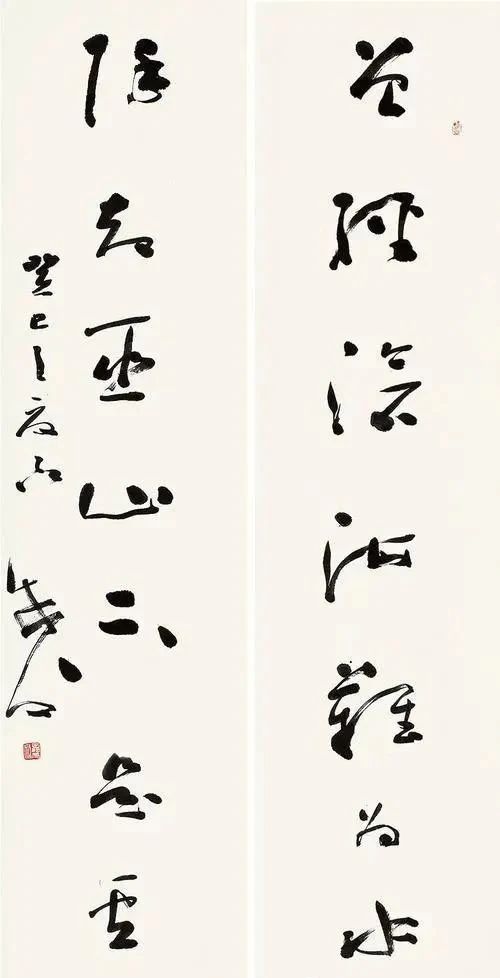 曾經滄海難為水
除却巫山不是雲
癸巳之夏